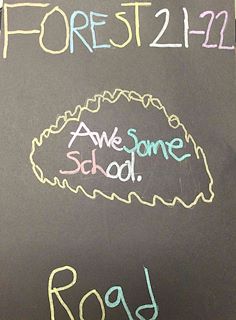 FOREST 21-22
AweSome
School.
Road